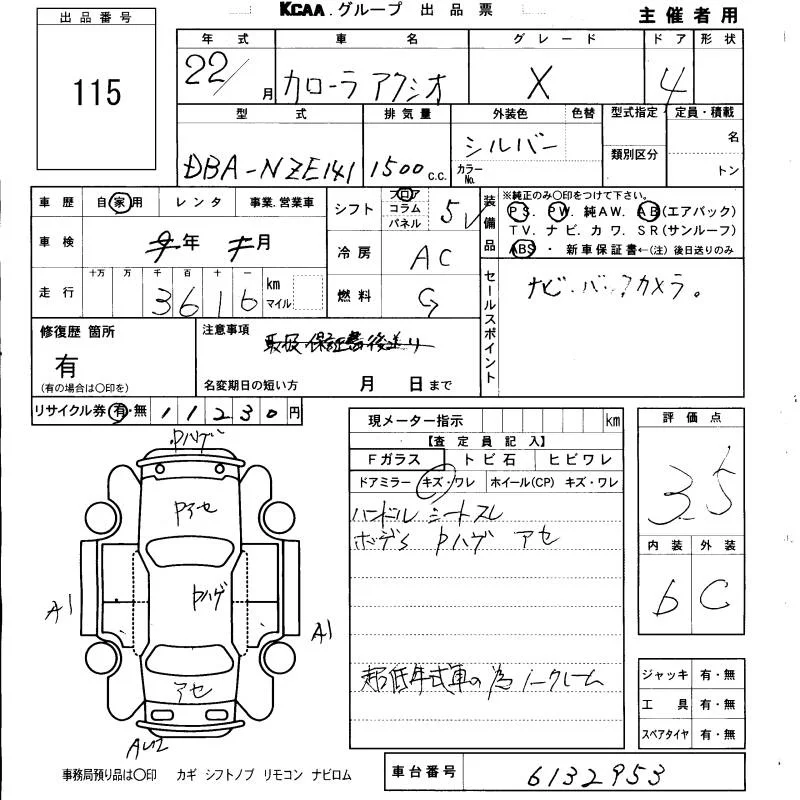 KCAA.グループ 出品票
主催者用
出品番号
115
年式 車名 グレード ドア 形状
22/月 カローラ アクシオ X 4
型式 排気量 外装色 色替 型式指定 定員・積載
DBA-NZE141 1500 c.c. シルバー カラーNo. 類別区分 名 トン
車歴 自家用 レンタ 事業.営業車
車検 年 月
走行 十万 万 千 百 十 一
3616 km マイル
シフト フロア コラム パネル 5
冷房 AC
燃料 G
装備品 ※純正のみ〇印をつけて下さい。
PS. PW. 純AW. AB(エアバック)
TV. ナビ. カワ. SR(サンルーフ)
ABS・新車保証書←(注)後日送りのみ
セールスポイント
ナビ.バックカメラ。
修復歴 箇所
有
(有の場合は〇印を)
注意事項
取扱・保証書後送り
名変期日の短い方 月 日まで
リサイクル券 有・無 11230円
現メーター指示 km
【査定員記入】
Fガラス トビ石 ヒビワレ
ドアミラー キズ・ワレ ホイール(CP) キズ・ワレ
ハンドル シートスレ
Pハゲ アセ
超低年式車の為ノークレーム
評価点
3.5
内装 外装
b C
Pハゲ
Pアセ
Pハゲ
A1
A1
アセ
ジャッキ 有・無
工具 有・無
スペアタイヤ 有・無
事務局預り品は〇印 カギ シフトノブ リモコン ナビロム
車台番号 6132953